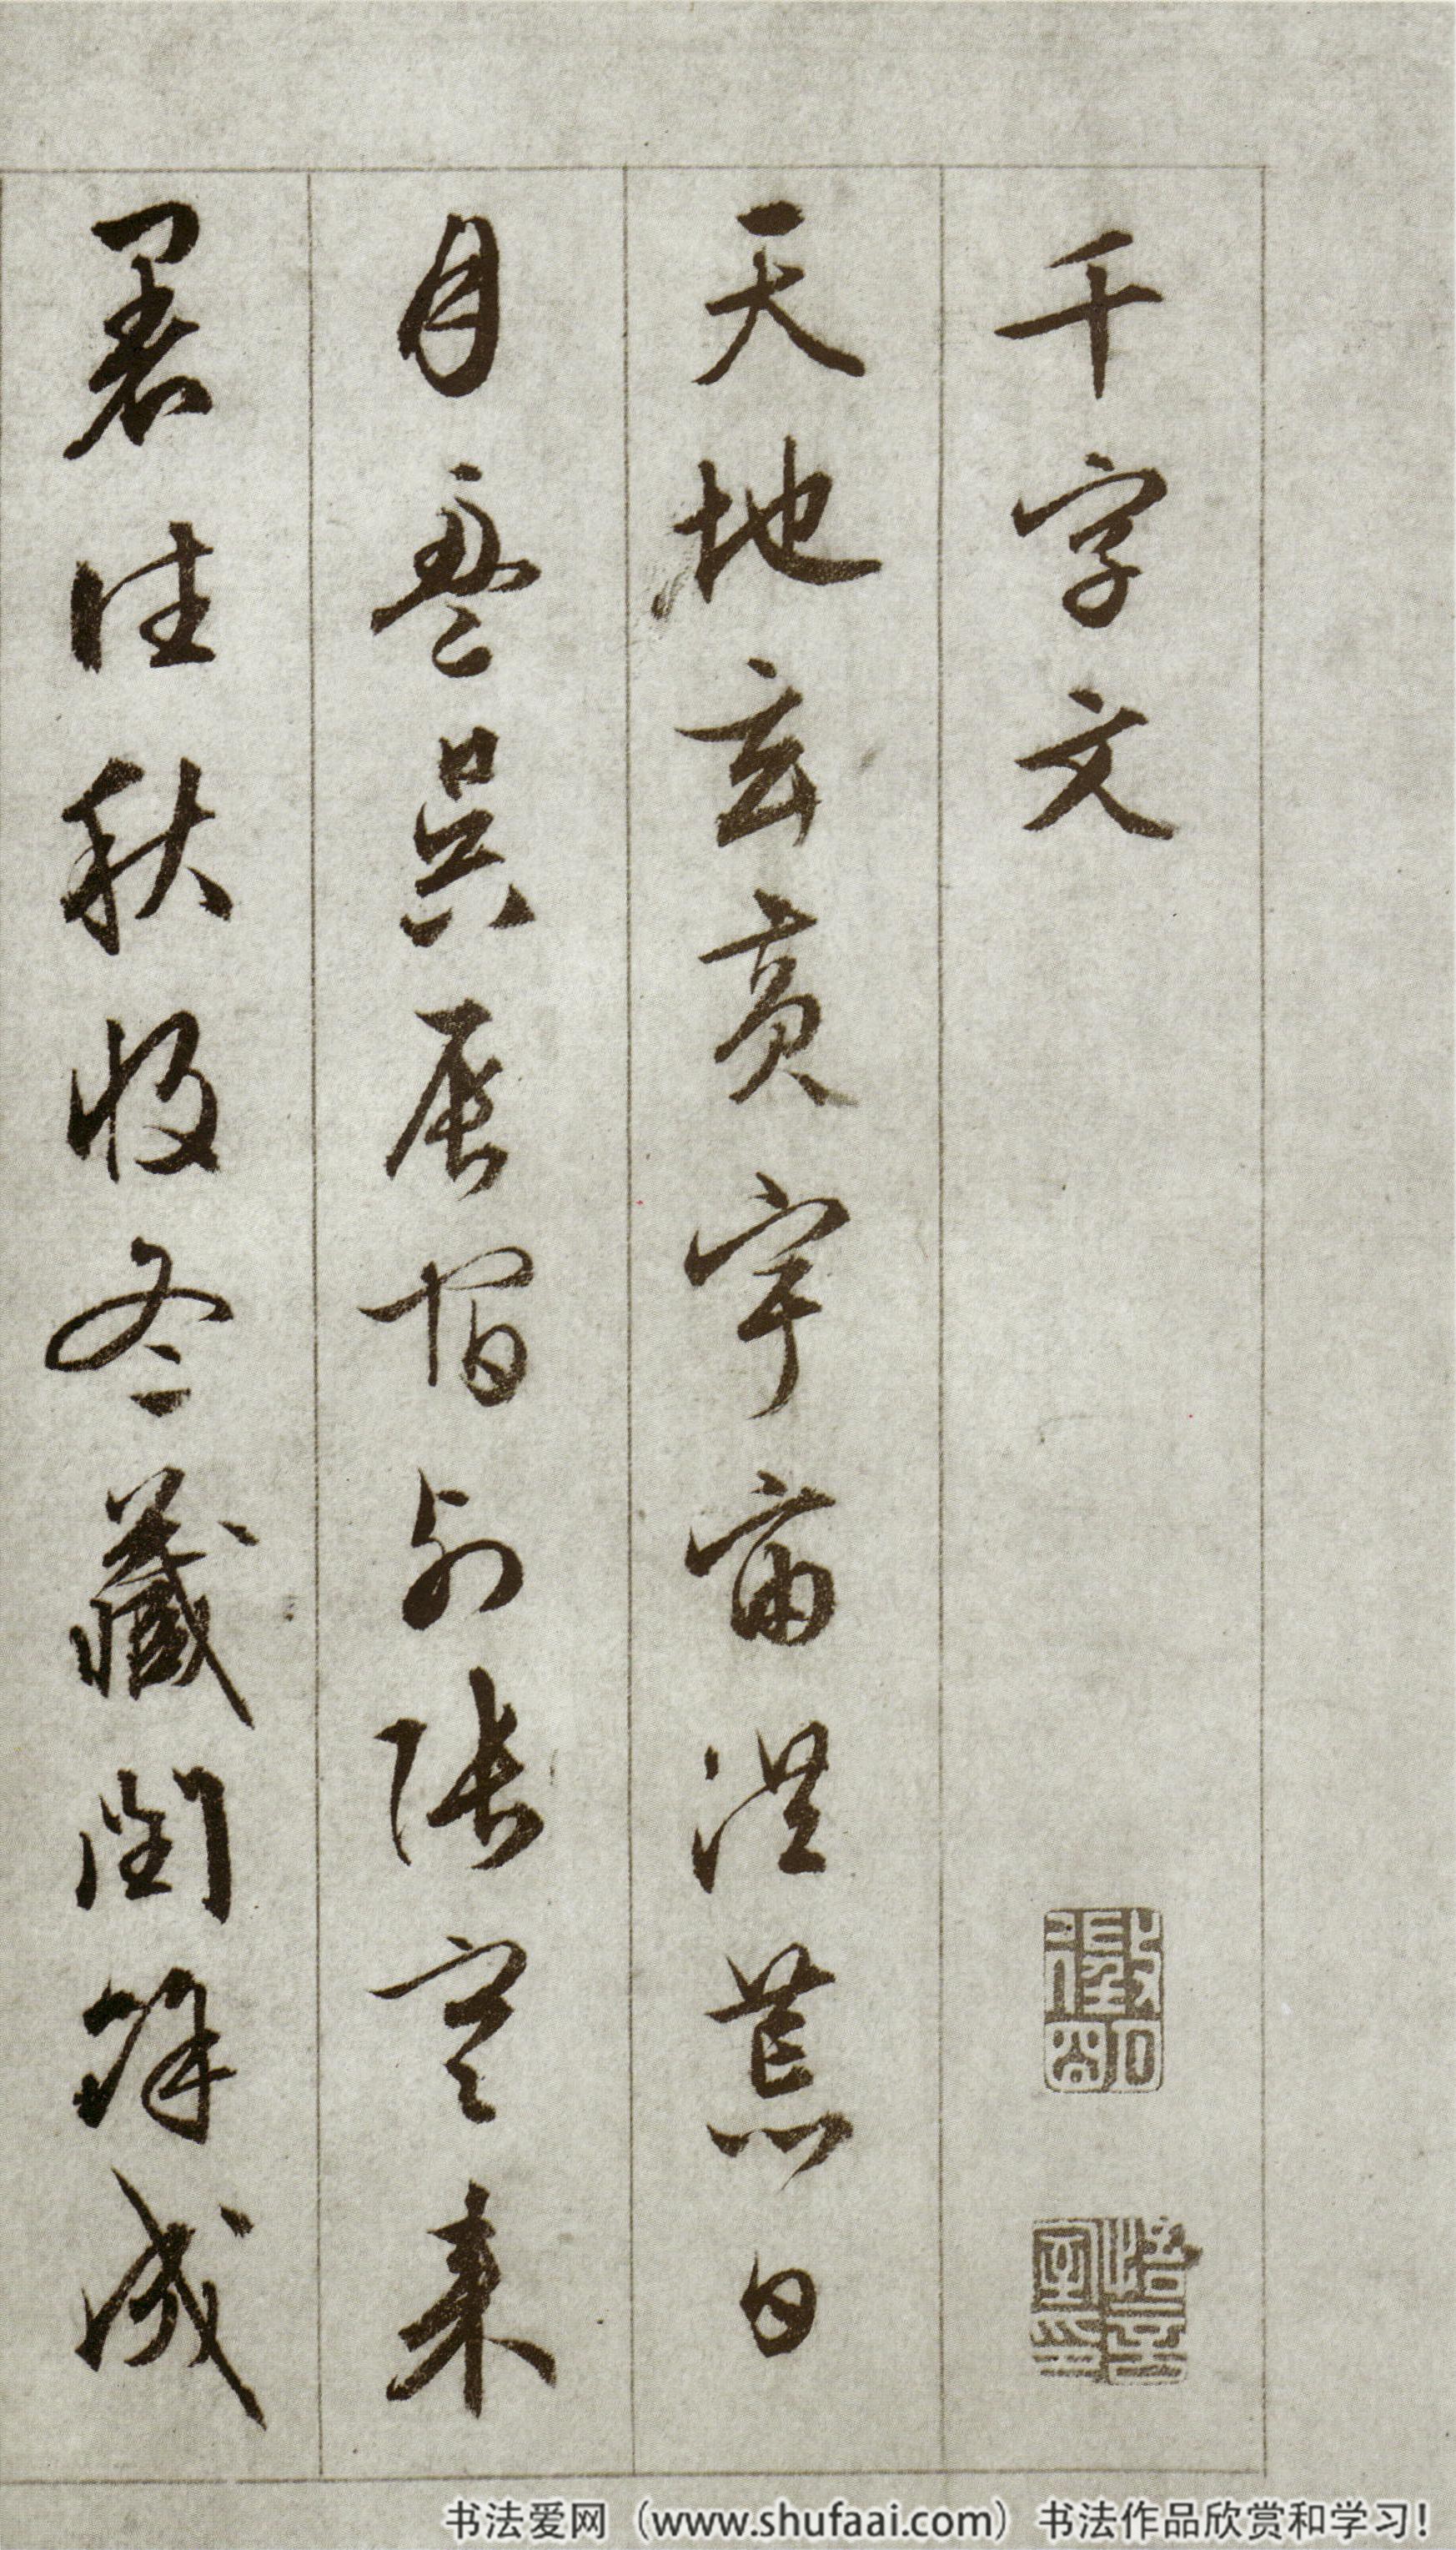 千字文
天地玄黃宇宙洪荒日
月盈昃辰宿列張寒来
暑往秋收冬藏閏餘成
书法爱网（www.shufaai.com）书法作品欣赏和学习！